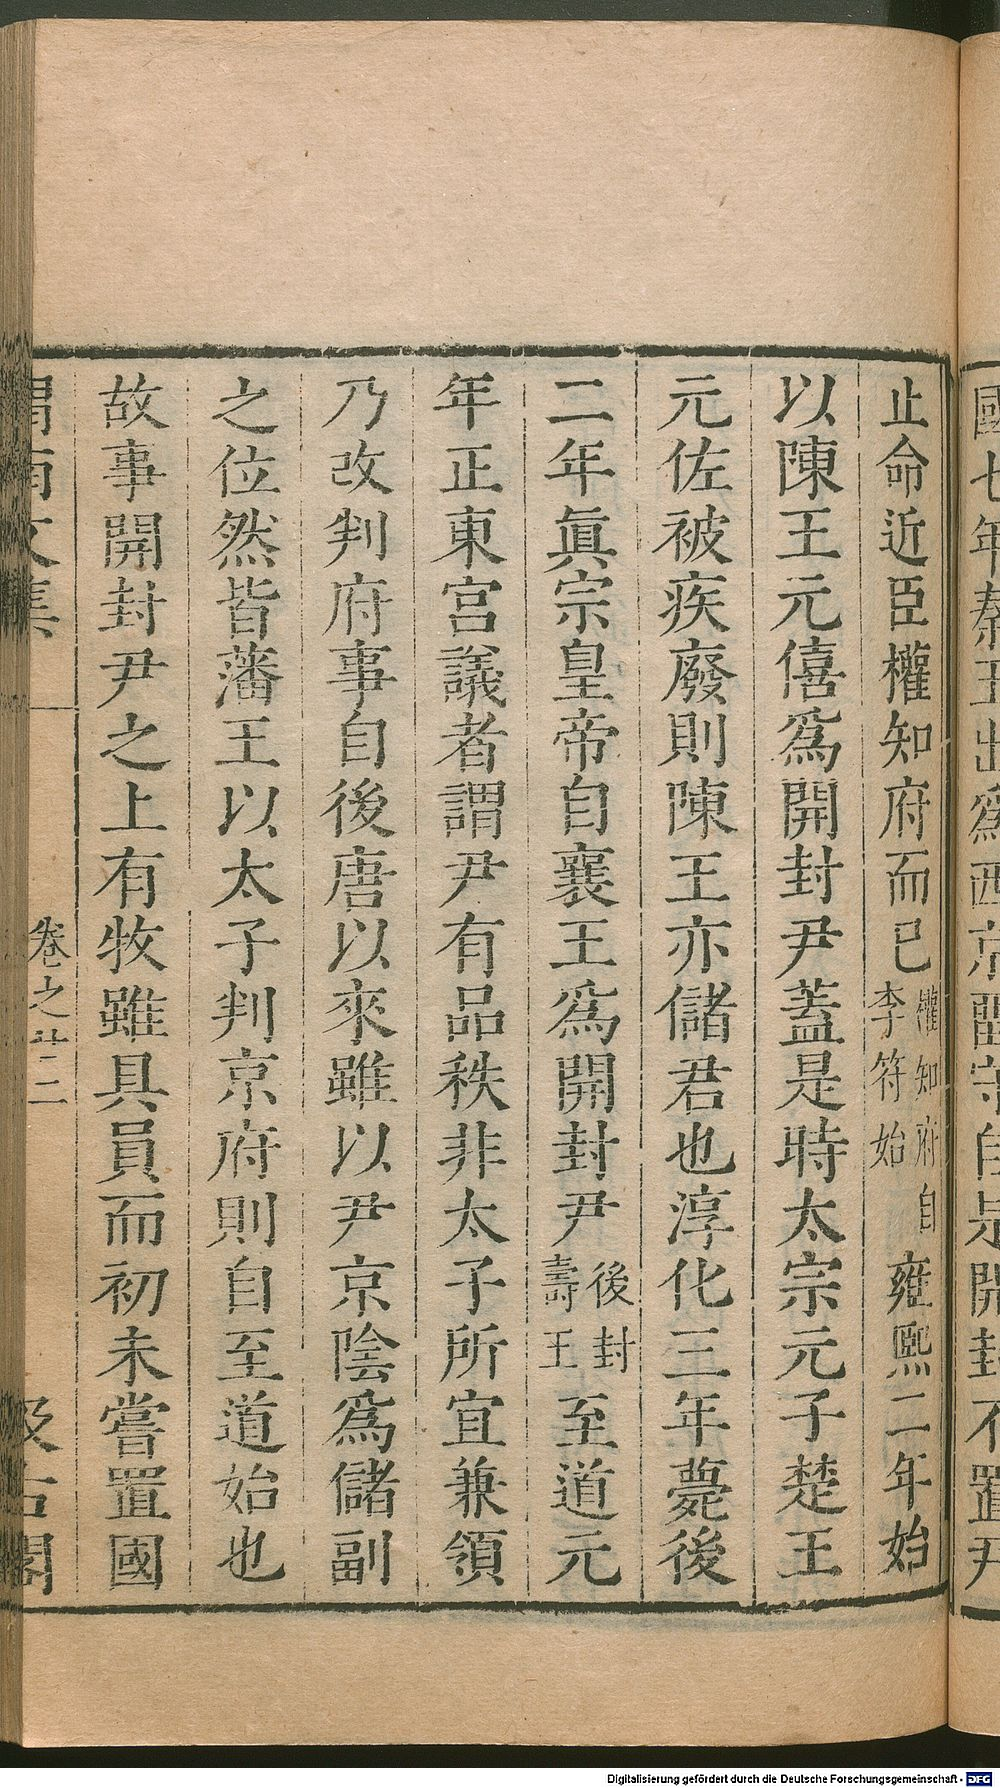 國七年秦王出爲西京留守自是開封不置尹
止命近臣權知府而已權知府自李符始雍熙二年始
以陳王元僖爲開封尹蓋是時太宗元子楚王
元佐被疾廢則陳王亦儲君也淳化三年薨後
二年眞宗皇帝自襄王爲開封尹後封壽王至道元
年正東宮議者謂尹有品秩非太子所宜兼領
乃改判府事自後唐以來雖以尹京陰爲儲副
之位然皆藩王以太子判京府則自至道始也
故事開封尹之上有牧雖具員而初未嘗置國
渭南文集 卷之廿二 汲古閣
Digitalisierung gefördert durch die Deutsche Forschungsgemeinschaft - DFG